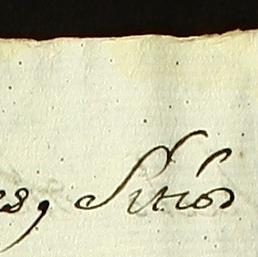 es, Sitios